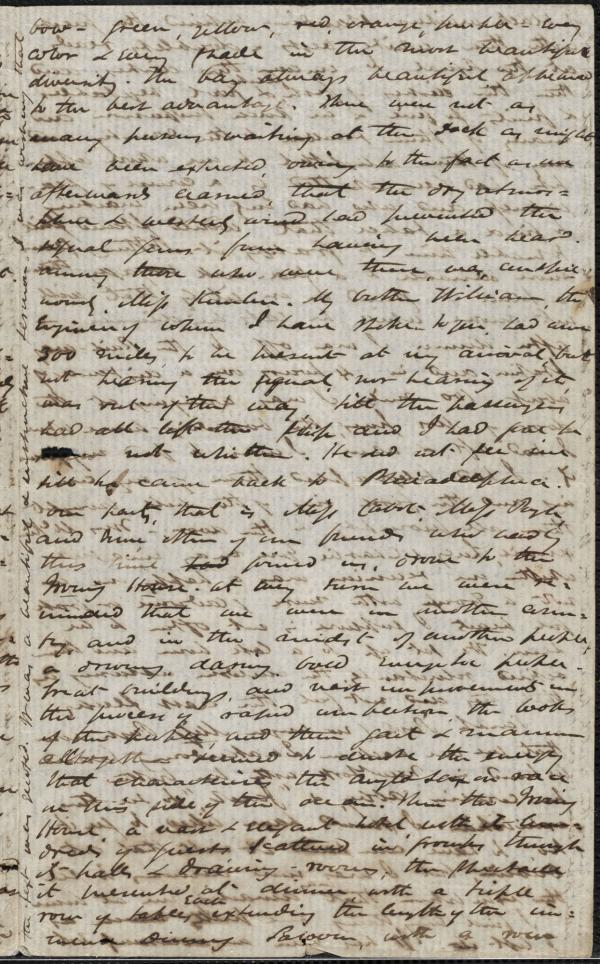 bow - green, yellow, red, orange, purple - every
color & every shade in the most beautiful
diversity the bay always beautiful appeared
to the best advantage. There were not as
many persons waiting at the dock as might
have been expected, owing to the fact as we
afterwards learned, that the dry atmos=
phere & westerly wind had prevented the
signal guns from having been heard.
among those who were there, was, conspic
uously, Miss Kimber. My brother William, the
Engineer of whom I have spoken to you, had come
300 miles, to be present at my arrival but
not hearing the signal, nor hearing of it
was out of the way, till the passengers
had all left the ship and I had gone he
knew not whither. He did not see me
till he came back to Philadelphia.
our party, that is Miss Cabot, Miss Pugh,
and nine other of our friends who
this time had joined us, drove to the
Irving House. at every turn we were re=
minded that we were in another coun=
try, and in the midst of another people,
a driving, daring, bold energetic people.
Great buildings, and vast improvements in
the process of rapid completion, the looks
of the people, and their gait & manner
altogether seemed to denote the energy
that characterises the anglo saxon race
on this side of the ocean. Then the Irving
House a vast & elegant hotel with its hun=
dreds of guests scattered in groups through
its halls & drawing-rooms, the spectacle
it presented at dinner with a triple
row of tables each extending the length of the im=
mense dining saloon, with a row
the text was guided. It was a beautiful &
sermon. I was